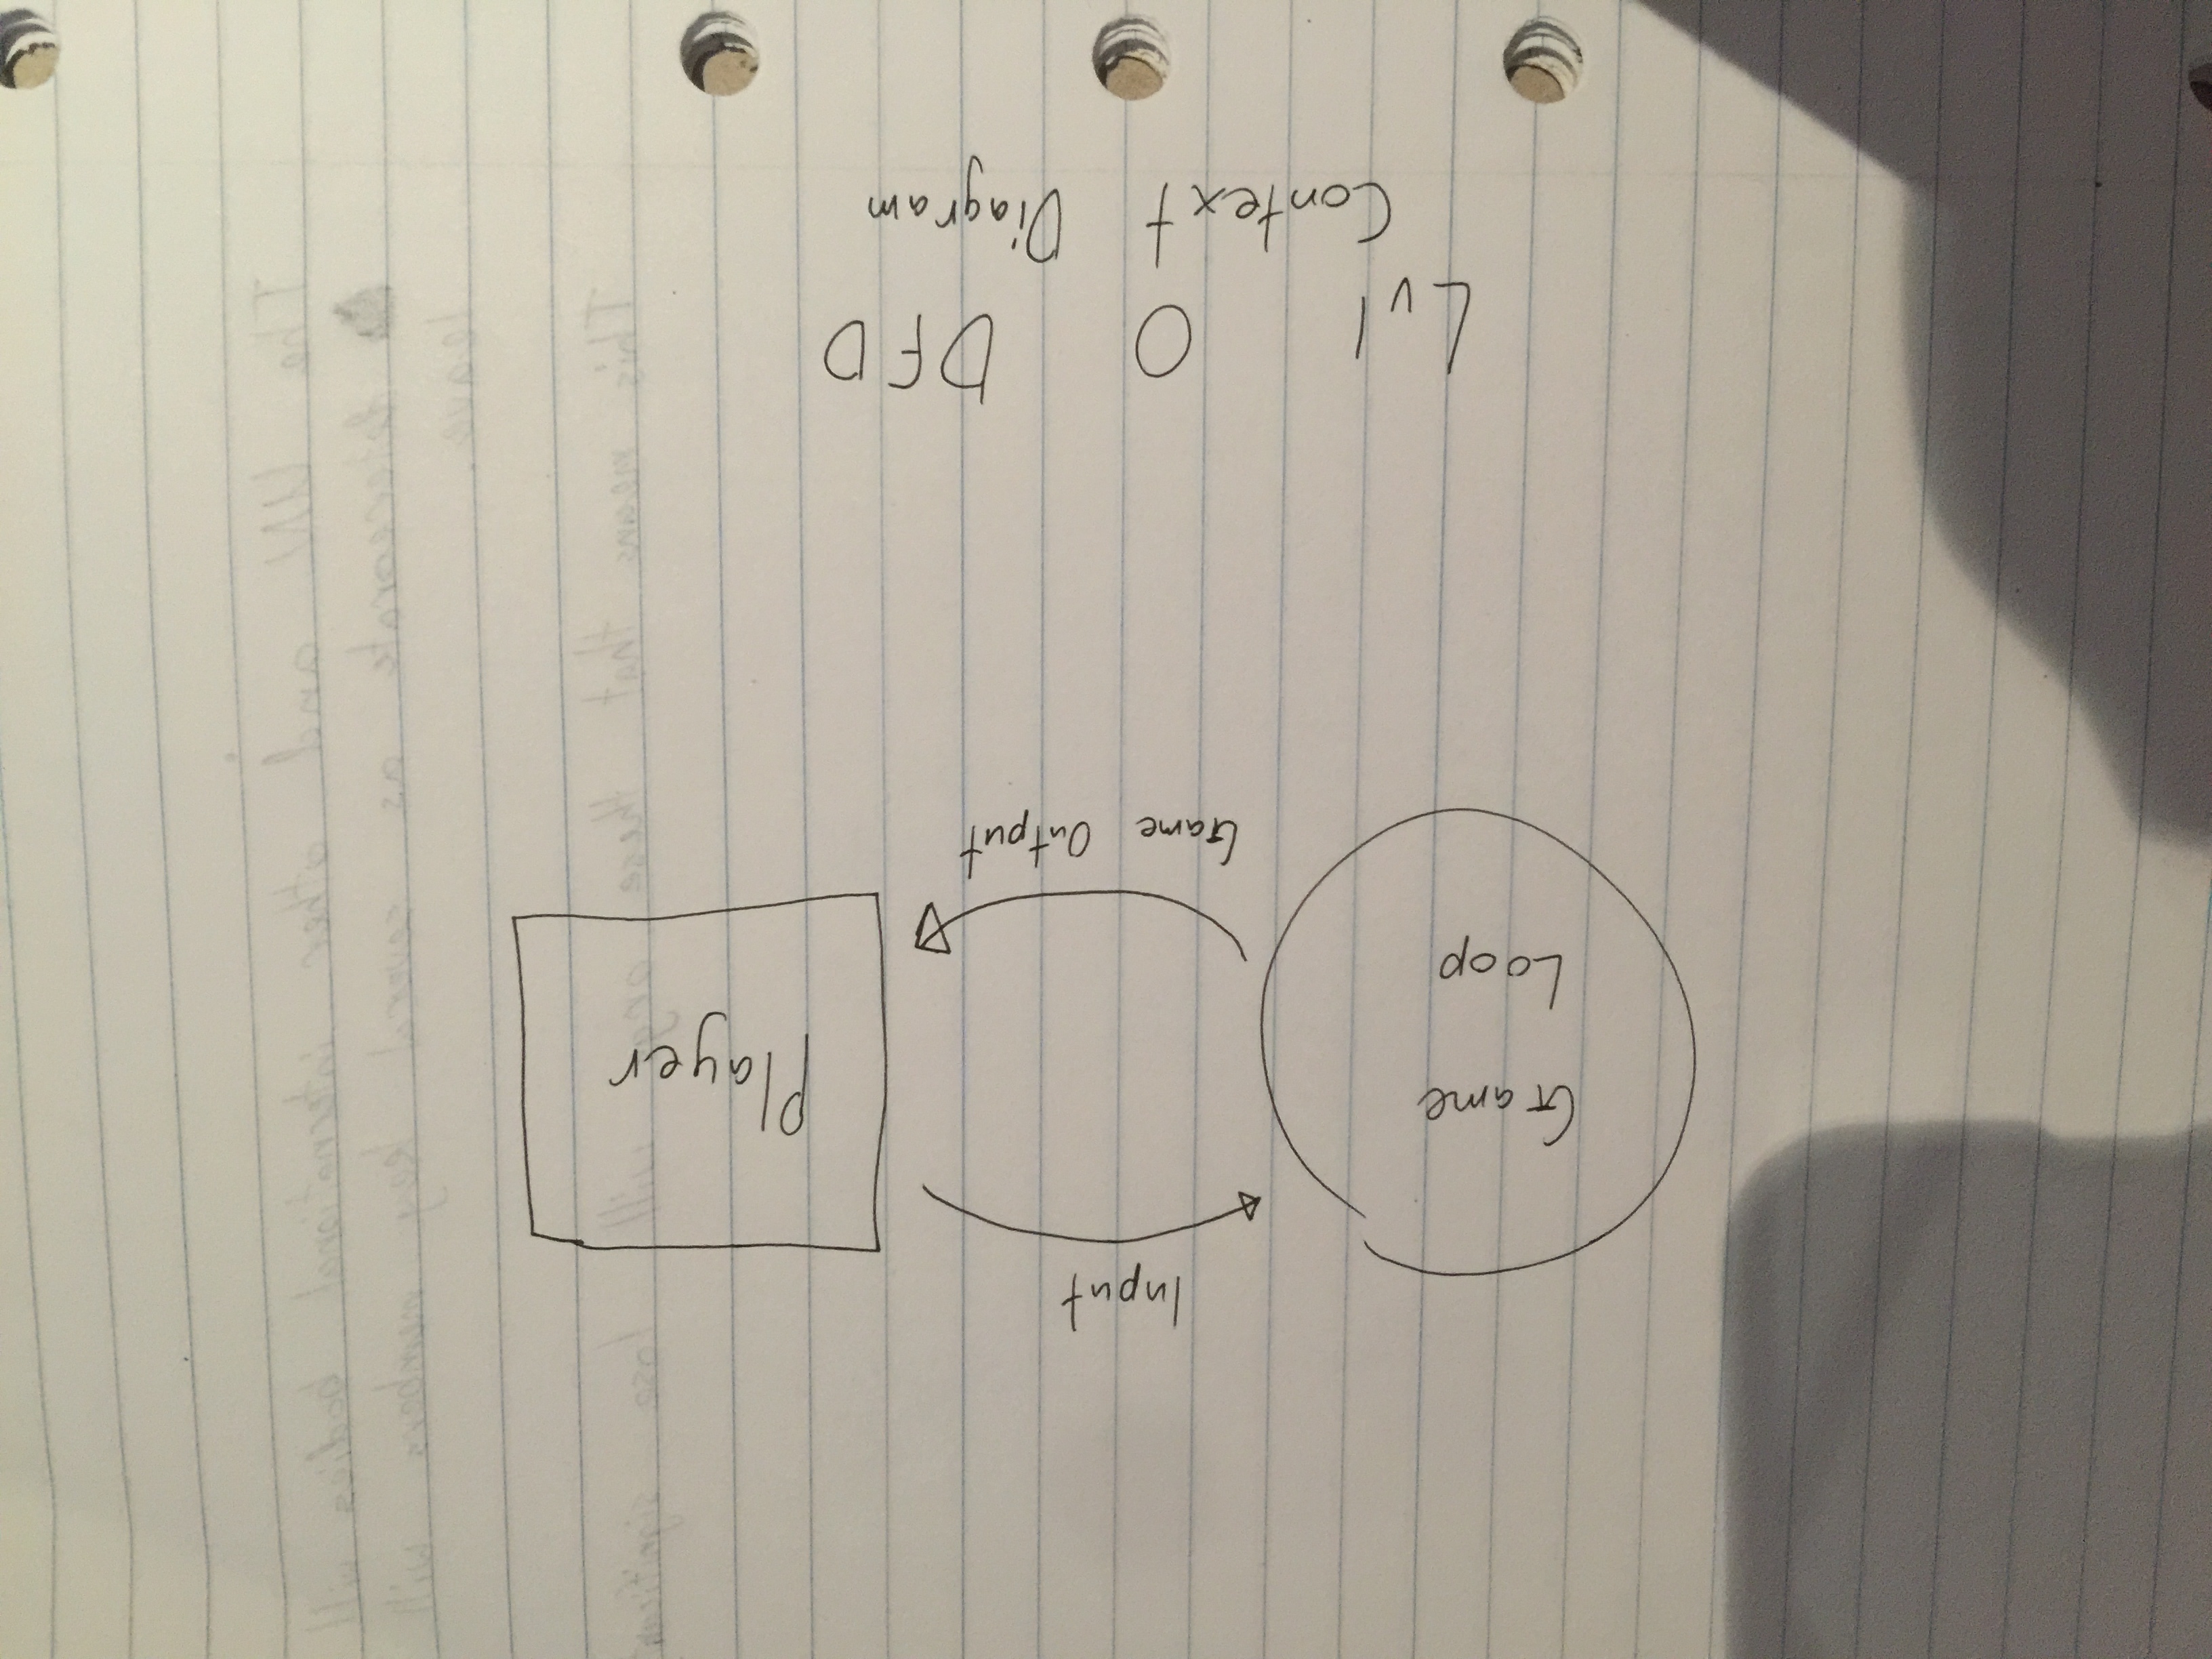 Input
Game
Loop
Player
Game Output
Lvl 0 DFD
Context Diagram
The UN and other international bodies will
detereorate as several key members will
leave.
This means that these orgs will lose